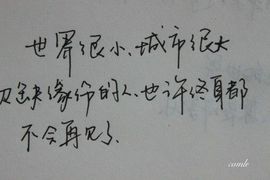 世界很小、城市很大
及缺缘份的人、也许终身都
不会再见了
comle